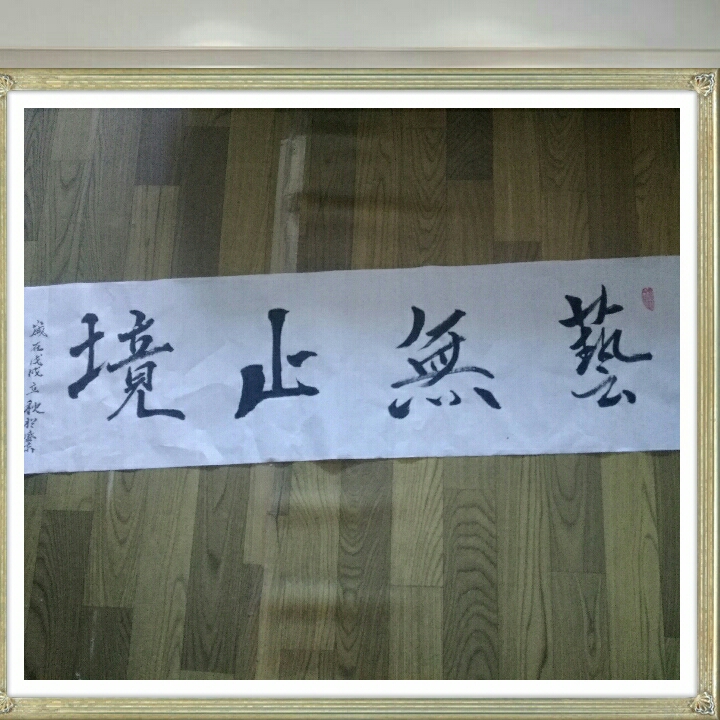 藝無止境
歲在戊戌立秋於